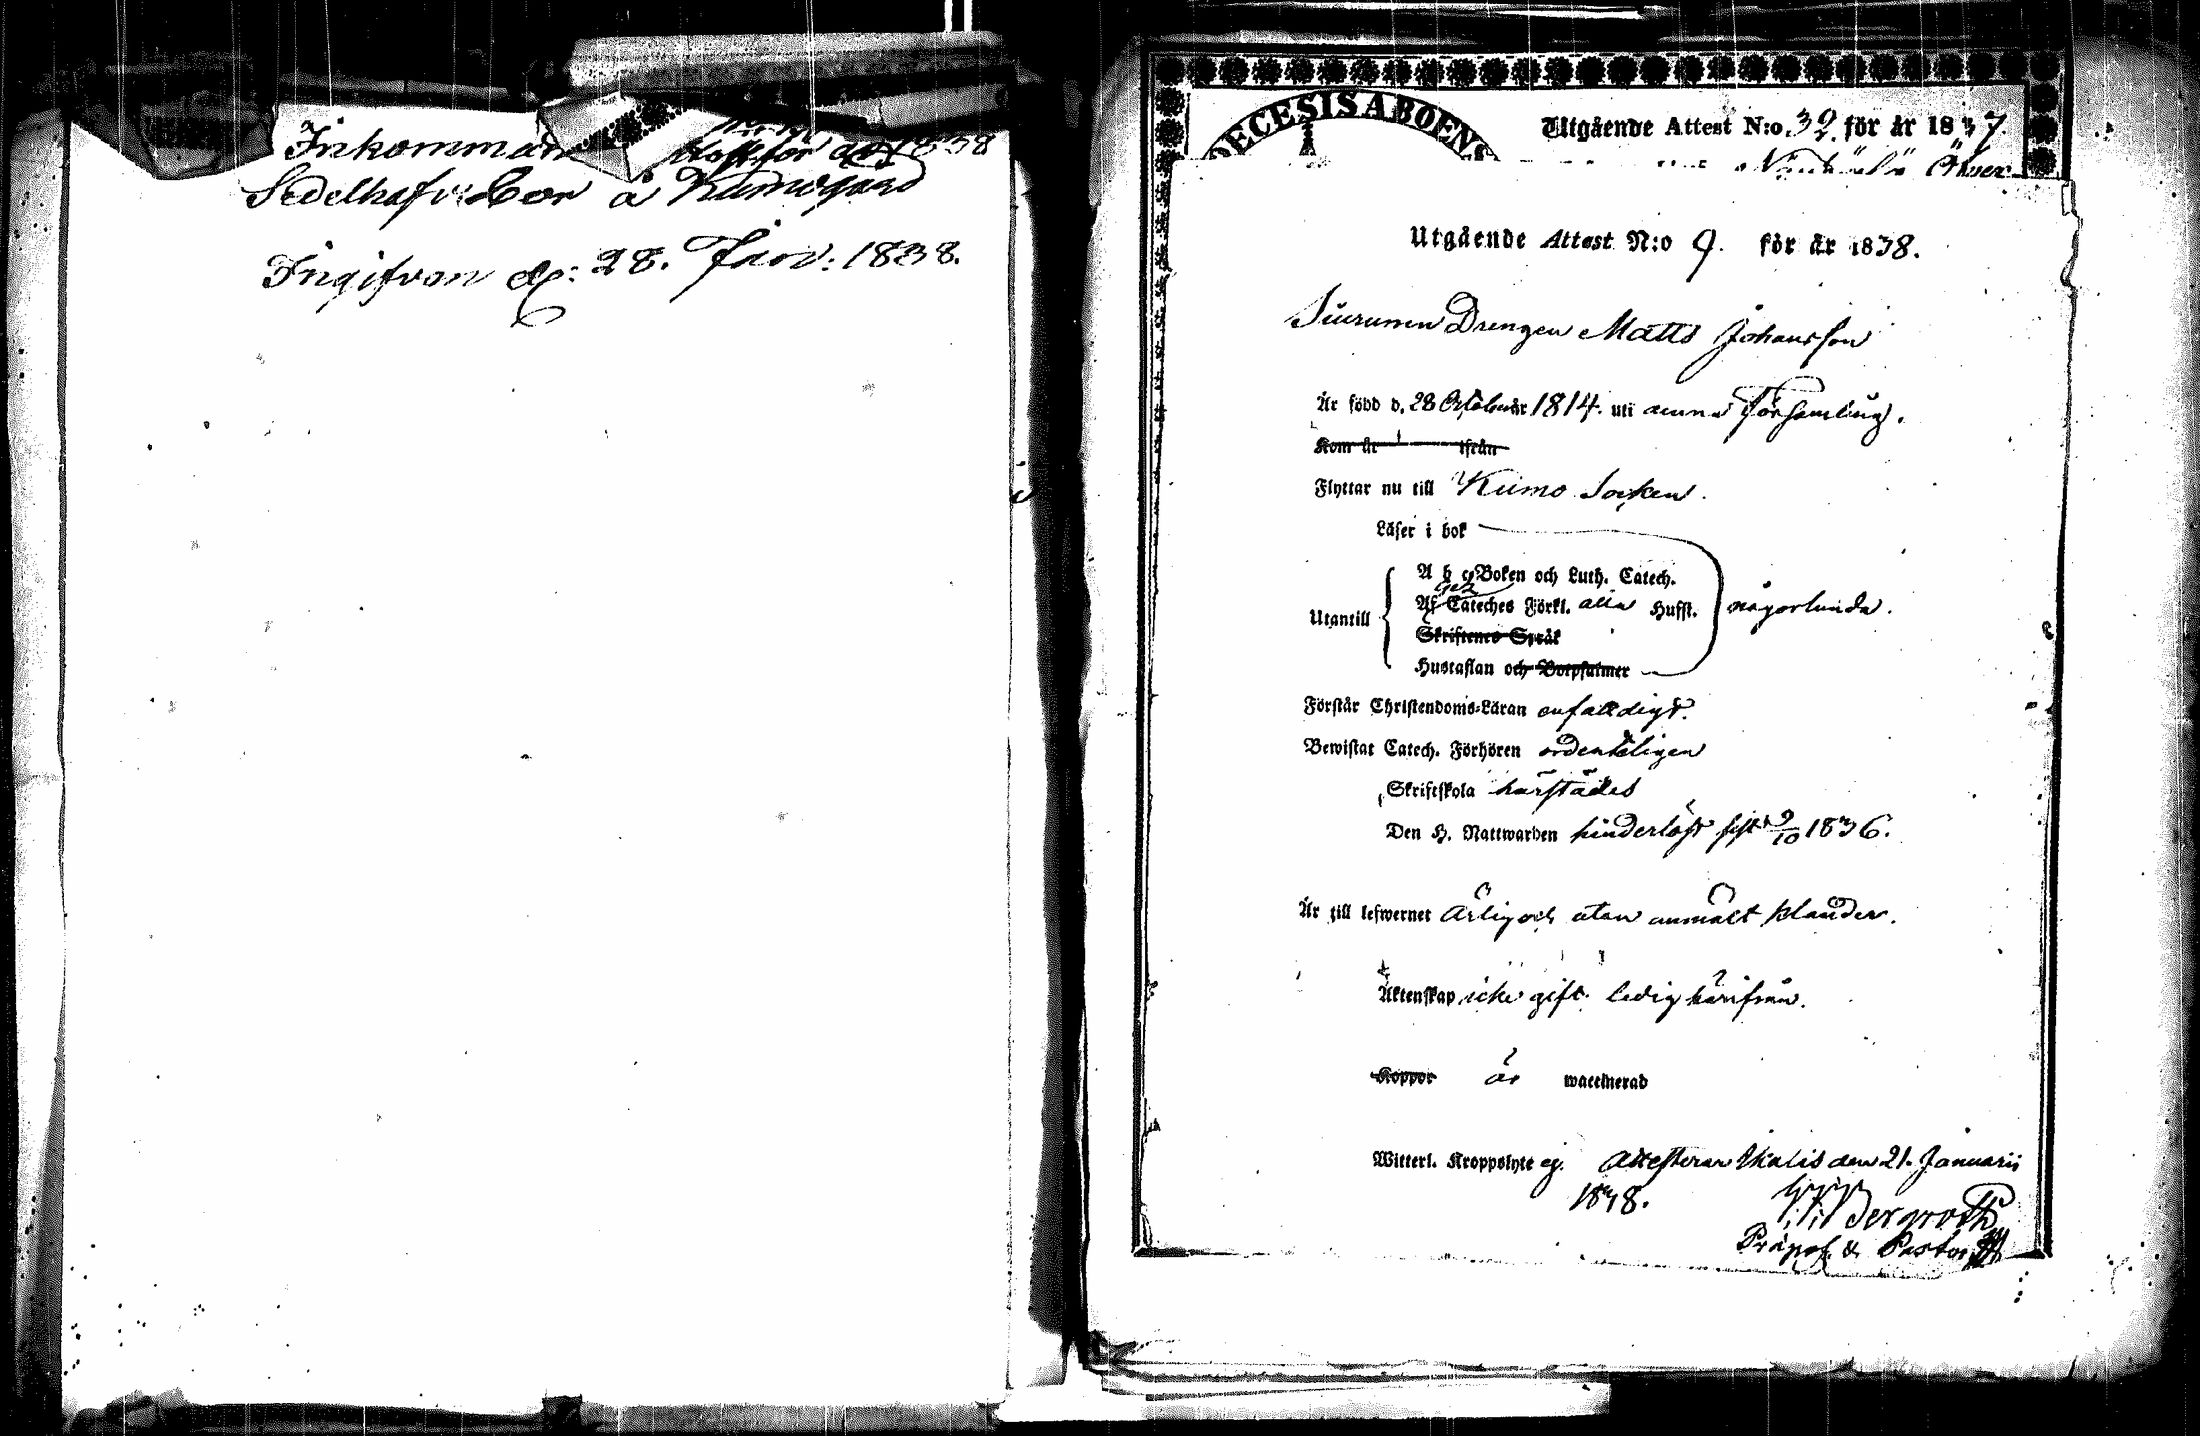 Inkomman
för år 1838
Sedelhafv: bor å Kumogård
Ingifven d: 28. Janv: 1838.
DECESIS ABOENS
Utgående Attest N:o 39. för år 1837.
Utgående Attest N:o 9. för år 1838.
Drengen Matts Johansson
Är född d. 28 October 1814. uti denna Församling.
Kom år ifrån
Flyttar nu till Kumo Socken.
Läser i bok
A b c Boken och Luth. Catech.
Af Cateches Förkl. alla Hufst.
någorlunda.
Utantill
Skriftenes Språk
Hustaflan och Botpsalmer
Förstår Christendoms-Läran enfaldigt.
Bewistat Catech. Förhören ordenteligen
Skriftskola härstädes
Den H. Nattwarden hinderlöst sist 9/10 1836.
Är till lefwernet ärlig och utan anmält klander.
Äktenskap icke gift. ledig härifrån.
Koppor är waccinerad
Witterl. Kroppslyte ej. Attesterar Ikalis den 21. Januarii
1838.
Bergroth
Præpos. & Pastor